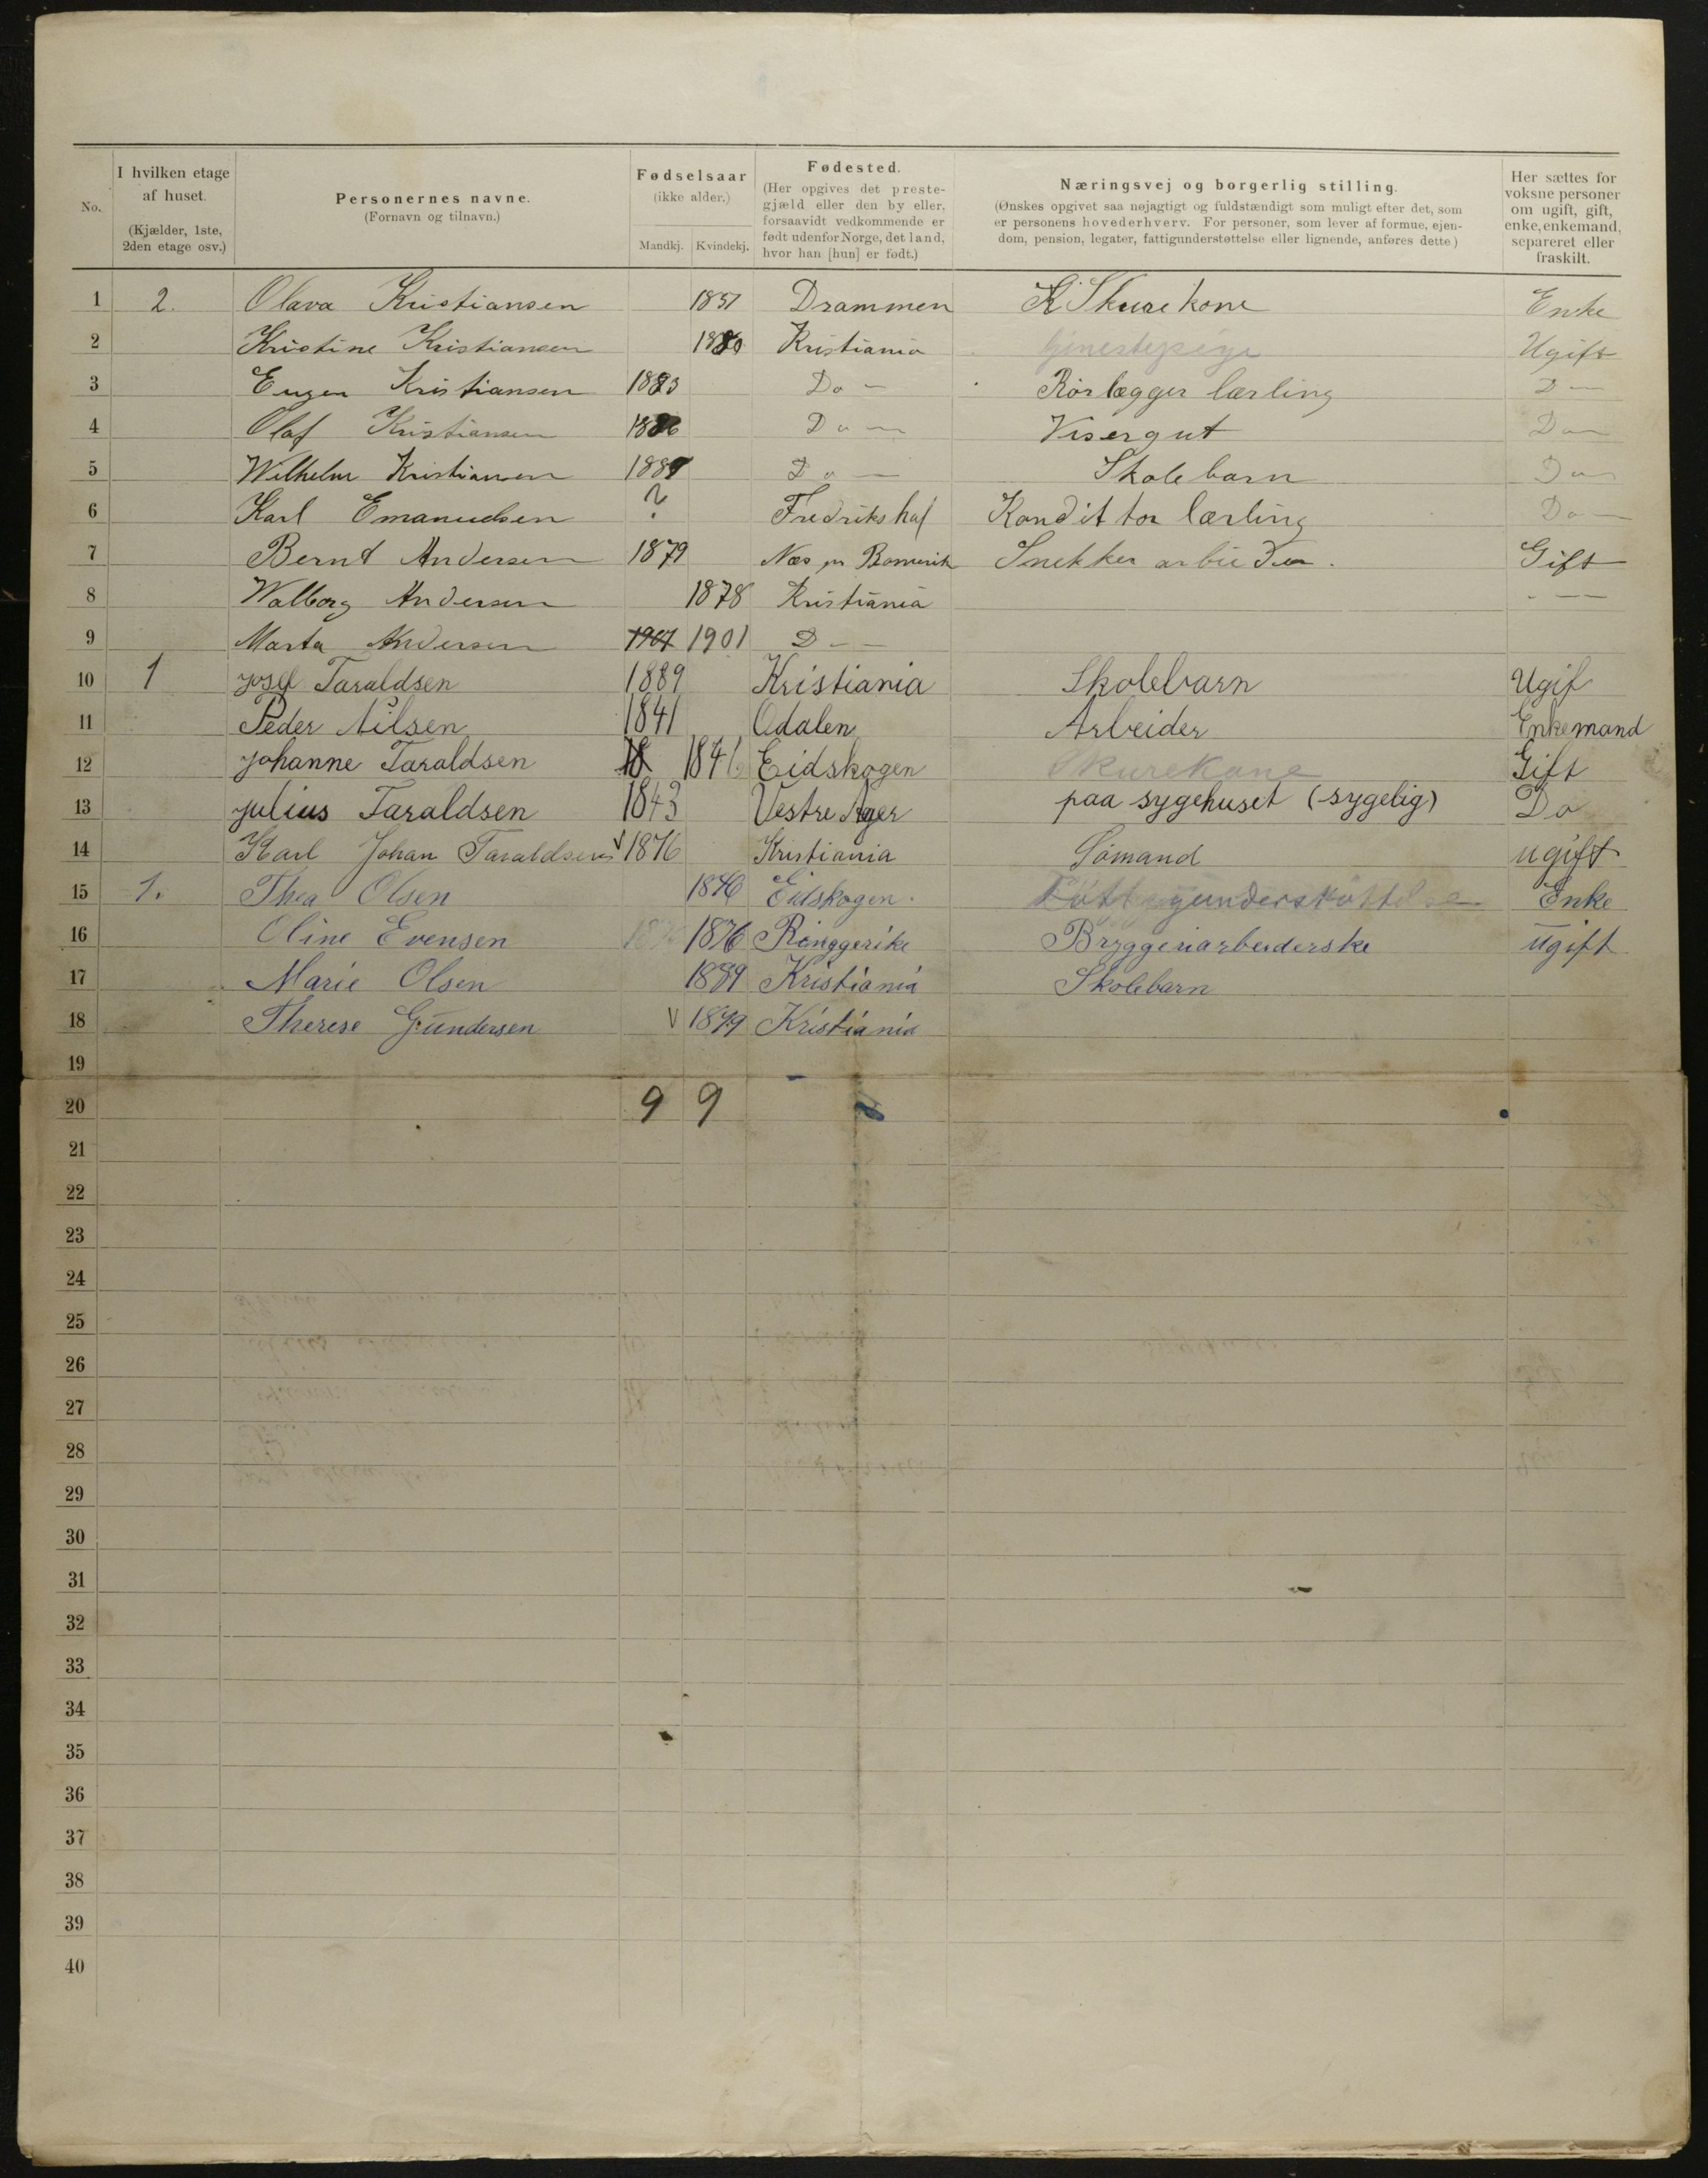 No.
I hvilken etage af huset. (Kjælder, 1ste, 2den etage osv.)
Personernes navne. (Fornavn og tilnavn.)
Fødselsaar (ikke alder.) Mandkj. Kvindekj.
Fødested. (Her opgives det prestegjæld eller den by eller, forsaavidt vedkommende er født udenfor Norge, det land, hvor han [hun] er født.)
Næringsvej og borgerlig stilling. (Ønskes opgivet saa nøjagtigt og fuldstændigt som muligt efter det, som er personens hovederhverv. For personer, som lever af formue, ejendom, pension, legater, fattigunderstøttelse eller lignende, anføres dette.)
Her sættes for voksne personer om ugift, gift, enke, enkemand, separeret eller fraskilt.
1 2. Olava Kristiansen 1851 Drammen Skurekone Enke
2 Kristine Kristiansen 1880 Kristiania Ugift
3 Eugen Kristiansen 1883 Do Rørlægger lærling D
4 Olaf Kristiansen 1886 Do Visergut Do
5 Wilhelm Kristiansen 1889 Do Skolebarn Do
6 Karl Emanuelsen ? Fredrikshal Kondittor lærling Do
7 Bernt Andersen 1879 Næs Romerik Snekker arbeider. Gift
8 Walborg Andersen 1878 Kristiania
9 Marta Andersen 1901 D
10 1 Josef Taraldsen 1889 Kristiania Skolebarn Ugif
11 Peder Nilsen 1841 Odalen Arbeider Enkemand
12 Johanne Taraldsen 18 1846 Eidskogen Skurekone Gift
13 Julius Taraldsen 1843 Vestre Ager paa sygehuset (sygelig) Do
14 Karl Johan Taraldsen 1876 Kristiania Sømand ugift
15 1. Thea Olsen 1846 Eidskogen. Fattigunderstøttelse Enke
16 Oline Evensen 1876 Ringgerike Bryggeriarbeiderske ugift
17 Marie Olsen 1889 Kristiania Skolebarn
18 Therese Gundersen 1899 Kristiania
19
20 9 9
21
22
23
24
25
26
27
28
29
30
31
32
33
34
35
36
37
38
39
40